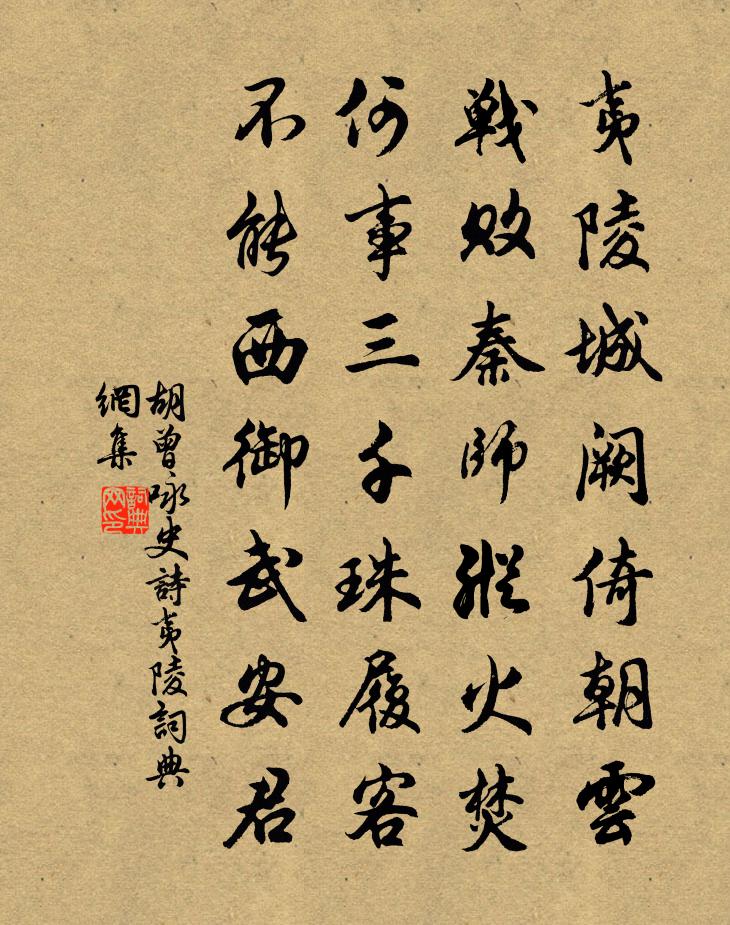 夷陵城阙倚朝雲
戦敗秦師縱火焚
何事三千珠履客
不能西御武安君
胡曾咏史詩夷陵詞典
網集
詞典
网印